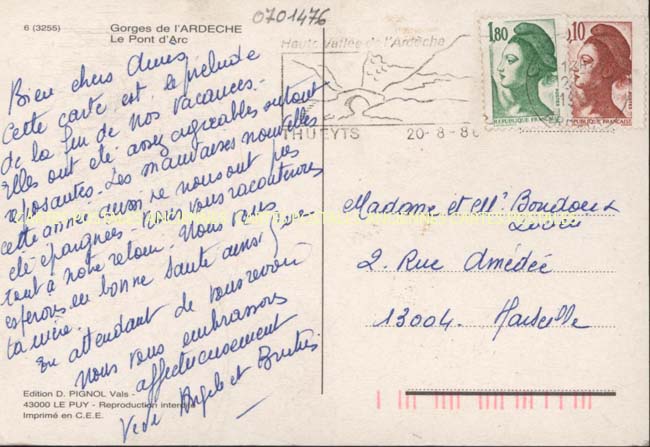 6 (3255) Gorges de l'ARDECHE
Le Pont d'Arc
0701476
Haute Vallée de l'Ardèche
THUEYTS 20-8-86
1,80
0,10
REPUBLIQUE FRANÇAISE
Bien chers Amis
Cette carte est le prélude
de la fin de nos vacances.
Elles ont été assez agréables surtout
reposantes. Les mauvaises nouvelles
cette année aussi ne nous ont pas
été épargnées. Nous vous raconterons
tout à notre retour. Nous vous
espérons en bonne santé ainsi que
ta mère.
En attendant de vous revoir
nous vous embrassons
affectueusement
Angèle et
Madame et Mr
Lucien
2. Rue Amédée
13004. Marseille
Edition D. PIGNOL Vals -
43000 LE PUY - Reproduction interdite
Imprimé en C.E.E.